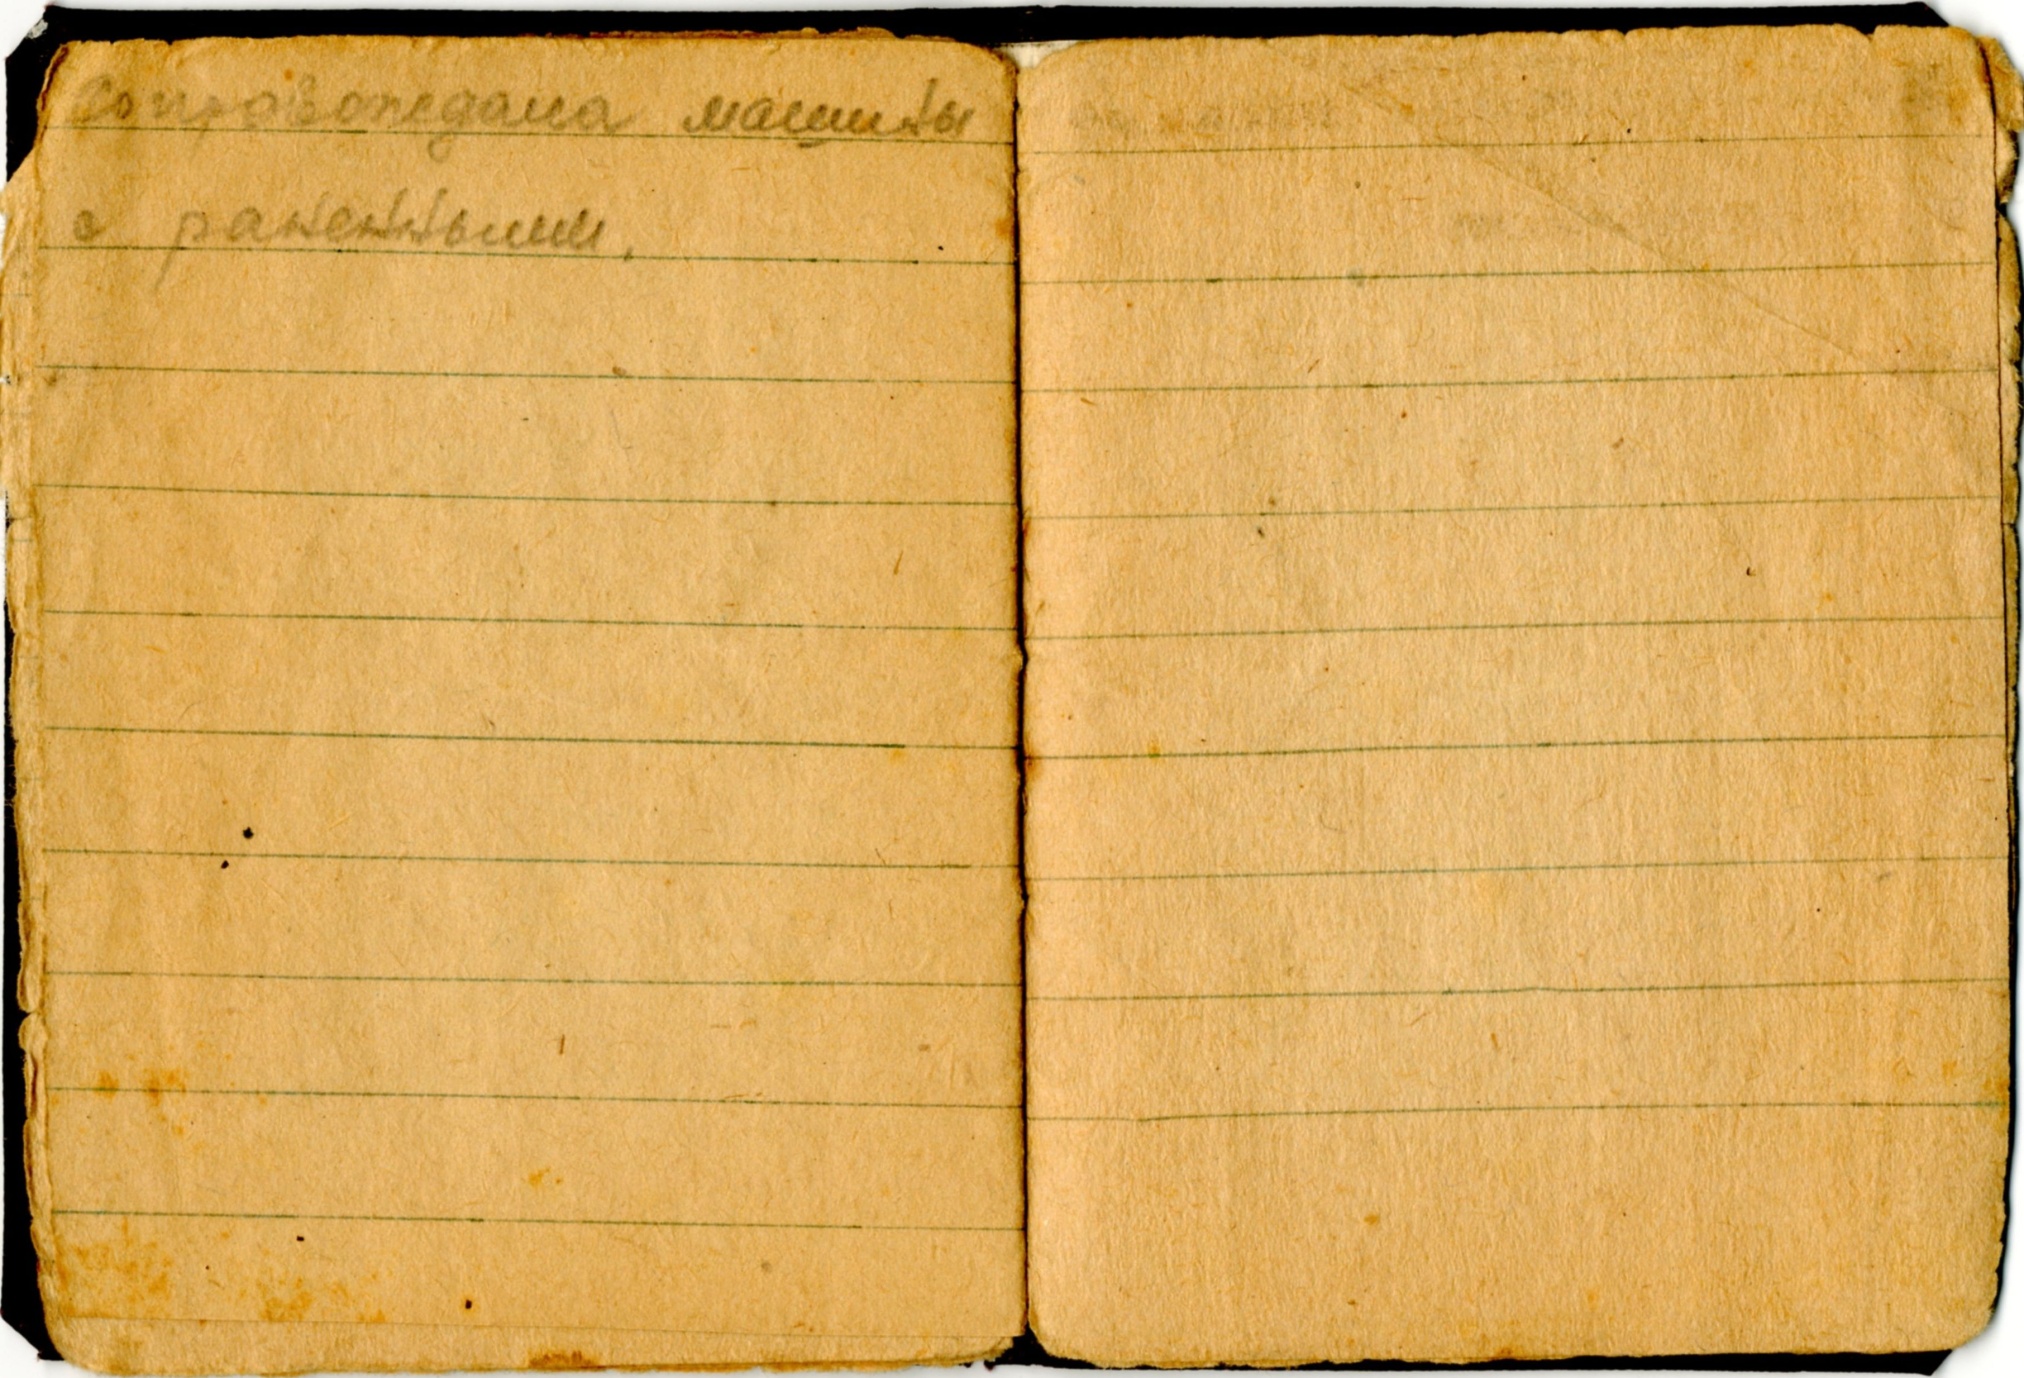 Сопровождала машины
с ранеными.